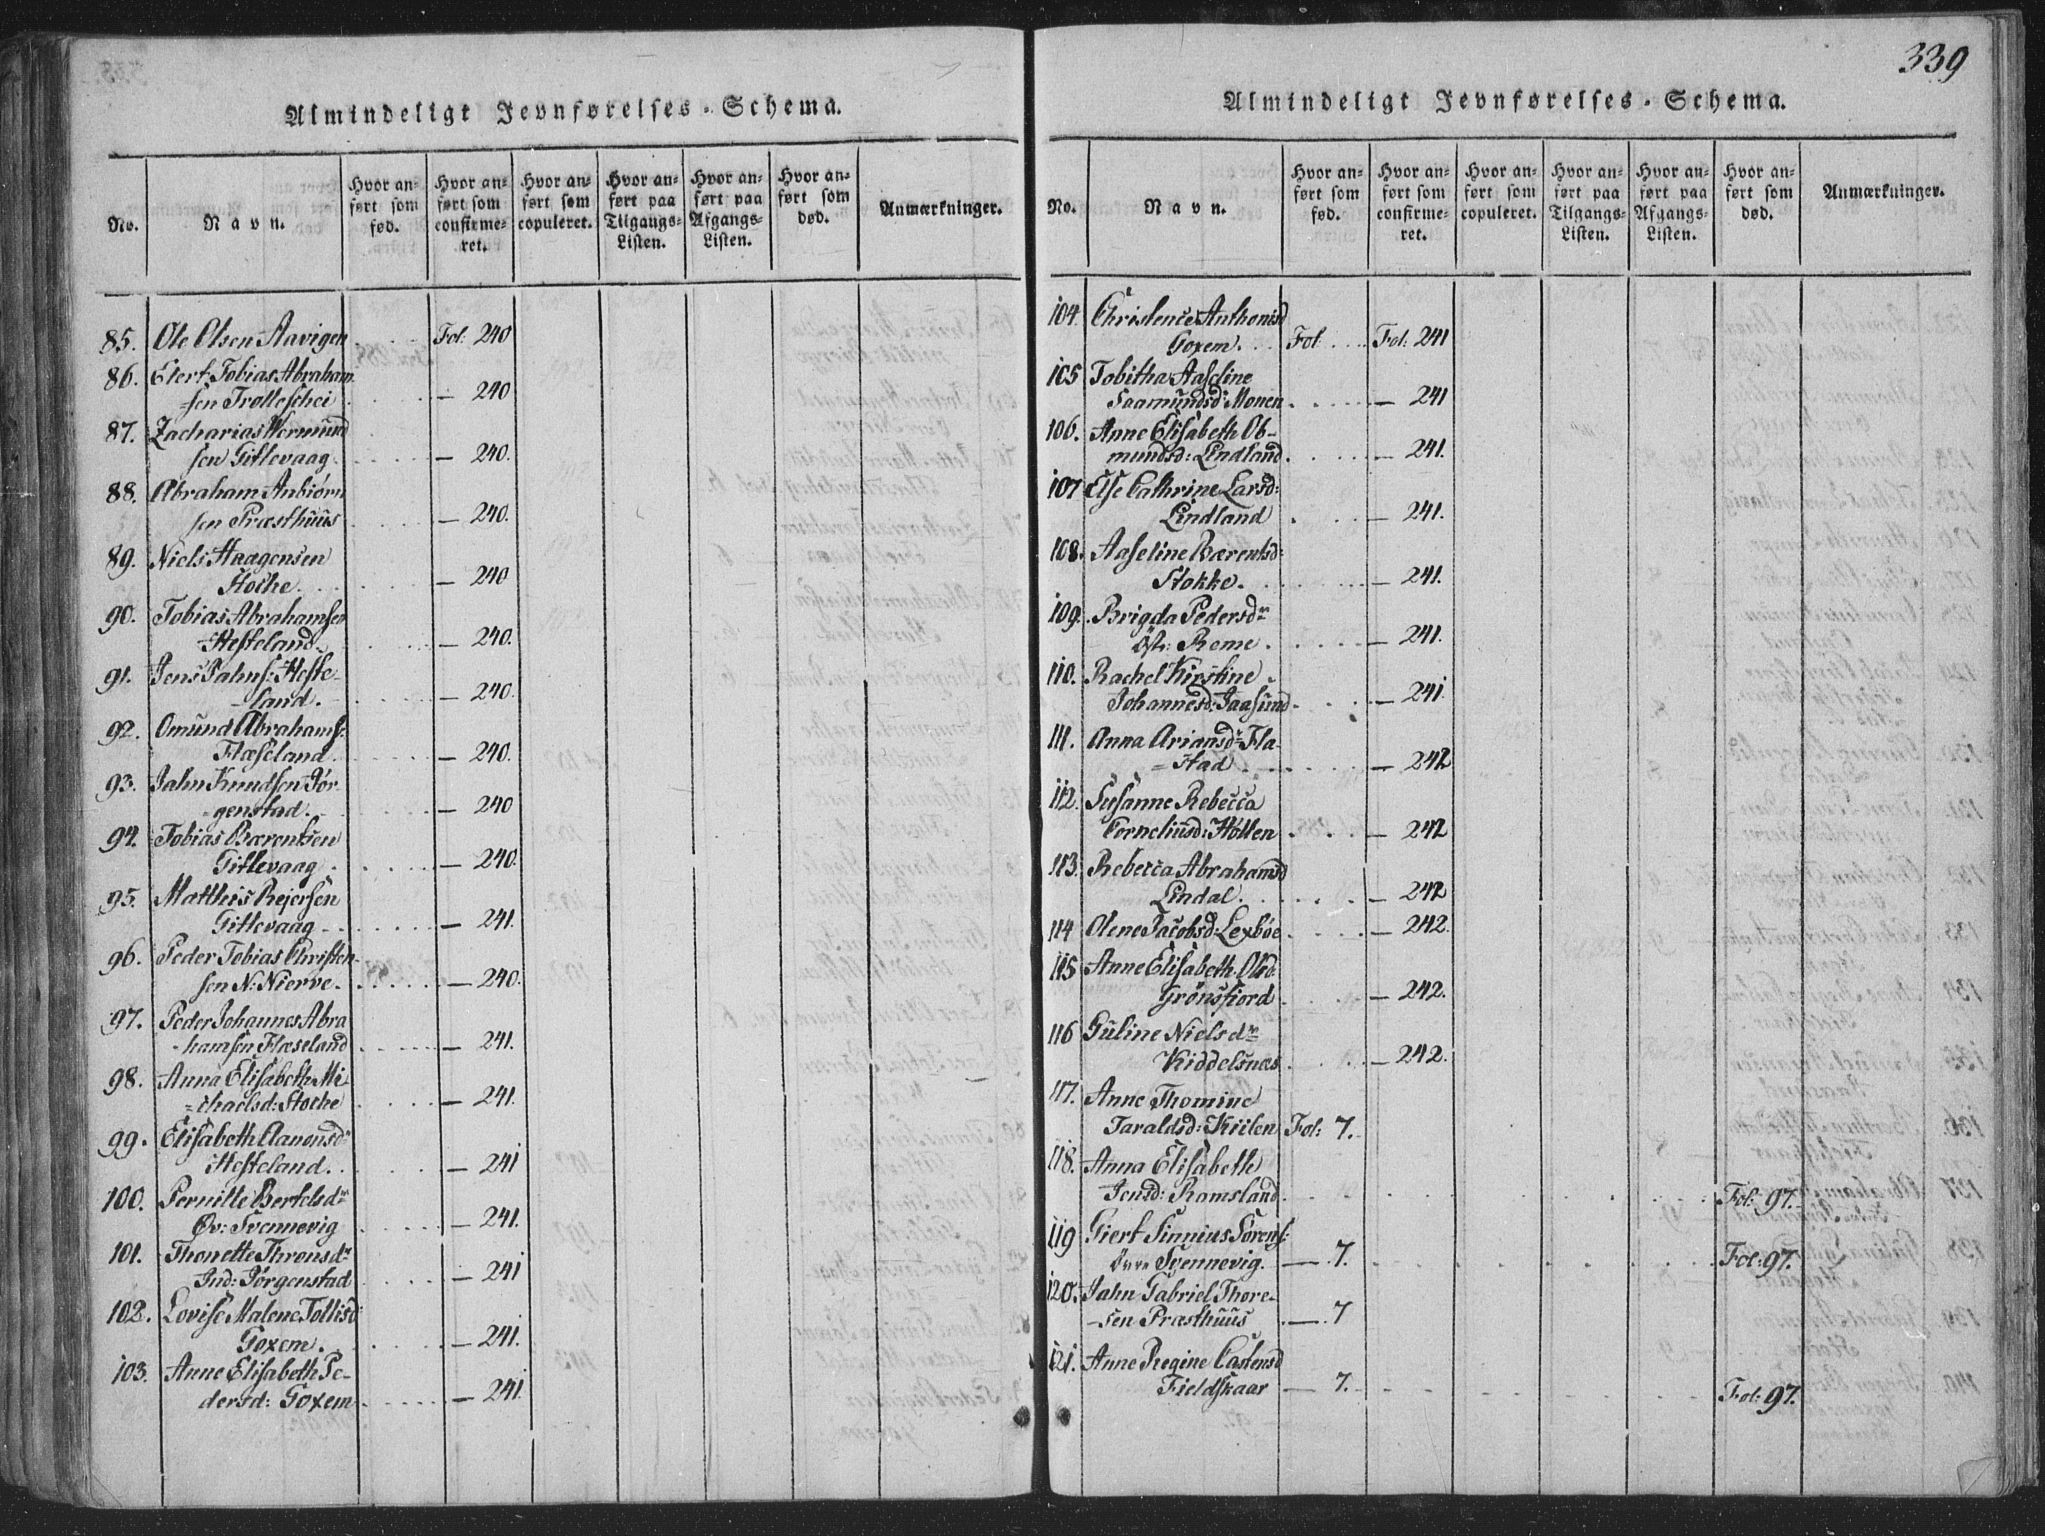 Almindeligt Jevnførelses-Schema.
No.
Navn.
Hvor anført som fød.
Hvor anført som confirmeret.
Hvor anført som copuleret.
Hvor anført paa Tilgangs-Listen.
Hvor anført paa Afgangs-Listen.
Hvor anført som død.
Anmærkninger.
85. Ole Olsen Aavigen Fol: 240
86. Elert Tobias Abraham
=sen Trølleschei — 240
87. Zacharias Wermund
sen Gitlevaag — 240.
88. Abraham Anbiørn
sen Præsthuus — 240.
89. Niels Haagensen
Stoche. — 240
90. Tobias Abrahamsen
=Hesteland. — 240.
91. Jens Jahns: Heste-
-land. — 240.
92. Omund Abrahams:
Flæseland. — 240.
93. Jahn Knudsen Jør
=genstad. — 240
94. Tobias Bærentsen
Gitlevaag — 240.
95. Matthis Rejersen
Gitlevaag — 241.
96. Peder Tobias Christen-
sen N: Nierve. — 240.
97. Peder Johannes Abra
-hamsen Flæseland — 241.
98. Anna Elisabeth Mi
=chaelsd: Stoche — 241.
99. Elisabeth Aanonsdr
Hesteland. — 241
100. Pernille Bertelsdr
Øv: Svennevig — 241.
101. Thonette Thronsdr
Ind: Jørgenstad — 241
102. Lovise Malene Tollisd:
Goxem. — 241.
103. Anne Elisabeth Pe-
dersd: Goxem — 241.
339
Almindeligt Jevnførelses-Schema.
No.
Navn.
Hvor anført som fød.
Hvor anført som confirmeret.
Hvor anført som copuleret.
Hvor anført paa Tilgangs-Listen.
Hvor anført paa Afgangs-Listen.
Hvor anført som død.
Anmærkninger.
104. Christence Anthonisd
Goxem. Fol Fol: 241
105 Tobitha Aaseline
Saamundsd: Monen — 241
106. Anne Elisabeth Ob-
mundsd: Lindland — 241.
107 Else Cathrine Larsd:
Lindland — 241.
108. Aaseline Bærentsd:
Stokke. — 241.
109. Brigda Pedersdr
Øst: Reme — 241.
110. Rachel Kirstine
Johannesd: Jaasund — 241
111. Anna Ariansdr Fla-
=stad — 242
112. Susanne Rebecca
Corneliusd: Holten — 242
113. Rebecca Abrahamsd
Lindal. — 242
114 Olene Jacobsd: Lexbøe — 242.
115 Anne Elisabeth Olsd
Grønsfiord — 242.
116 Guline Nielsdr
Kiddelsnæs — 242.
117. Anne Thomine
Taraldsd: Kiilen Fol: 7.
118. Anna Elisabeth
Jensd: Ramsland Fol: 97.
119 Giert Sinnius Sørens:
Øvre Svennevig. — 7. Fol: 97.
120. Jahn Gabriel Thore-
-sen Præsthuus — 7
121. Anne Regine Castensd
Fieldskaar — 7. Fol: 97.